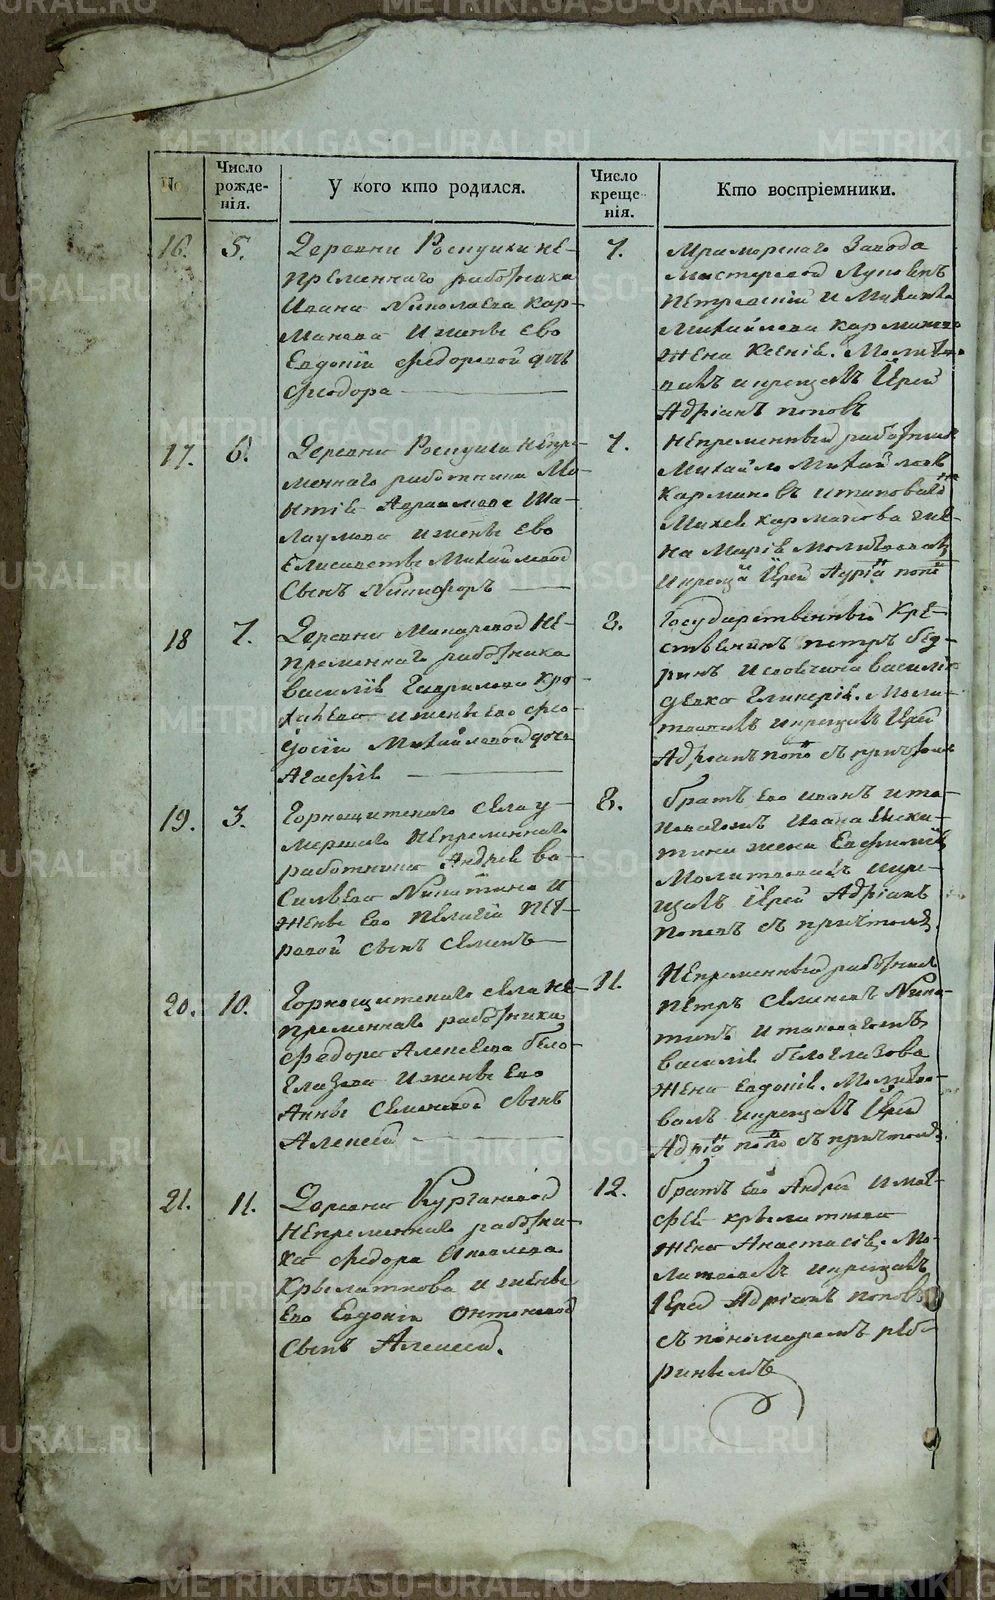 №
Число рожде- нія.
У кого кто родился.
Число креще- нія.
Кто воспріемники.
16.
5.
Деревни Роспухи не-
пременнаго работника
Ивана Николаева Кар-
манова и жены ево
Евдокіи Федоровой дочь
Феодора
7.
Мраморскаго завода
мастеровой
Петровскій и Михаила
Михайлова Карманова
жена Ксенія. Молитво-
валъ и крещалъ Іерей
Адріанъ Поповъ
17.
6.
Деревни Роспухи непре-
меннаго работника Ма-
Авраамова Ша-
лаумова и жены ево
Елисаветы Михайловой
сынъ Никифоръ
7.
Непременный работник
Михайло Михайловъ
Кармановъ и таковаго
Карманова же-
на Марія молитвовалъ
и креща Іерей Адріа попо
18
7.
Деревни Макаровой не-
пременнаго работника
Василія Гаврилова Кро-
и жены ево Фео-
досіи Михайловой дочь
Агафія
8.
Государственный кре-
стьянинъ Петръ
Василія
девка Гликерія. Моли-
твовалъ и крещалъ Іерей
Адріанъ попо съ причтомъ
19.
3.
Горнощитскаго села у-
мершаго непременнаго
работника Андрея Ва-
сильева Никитина и
жены ево Пелагіи Пет-
ровой сынъ Семенъ
8.
братъ ево Иванъ и та-
коваго жъ Ивана Ники-
тина жена Евфимія
молитвовалъ и кре-
щалъ Іерей Адріанъ
Поповъ съ причтомъ.
20.
10.
Горнощитскаго села не-
пременнаго работника
Федора Алексеева Бело-
глазова и жены ево
Анны Семеновой сынъ
Алексей
11.
Непременный работник
Петръ Семеновъ Ники-
тинъ и таковаго жъ
Василія Белоглазова
жена Евдокія. Молитво-
валъ и крещалъ Іерей
Адріа попо съ причтомъ.
21.
11.
Деревни Кургановой
непременнаго работни-
ка Федора Яковлева
Крылаткова и жены
ево Евдокіи Онтоновой
сынъ Алексей.
12.
братъ ево Андрей и Мат-
фея Крылаткова
жена Анастасія. Мо-
литвовалъ и крещалъ
Іерей Адріанъ Поповъ
съ пономаремъ Реб-
ринымъ
METRIKI.GASO-URAL.RU